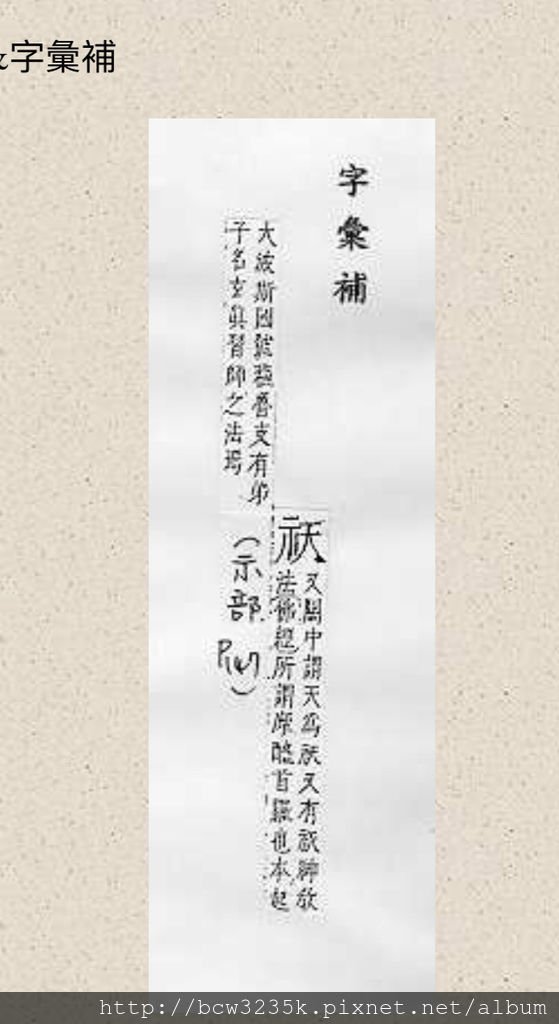 字彙補
字彙補
祆
又關中謂天為祆又有祆神
法佛經所謂摩醯首羅也本起
大波斯國號蘇魯支有弟
子名玄真習師之法
(示部
http://bcw3235k.pixnet.net/album